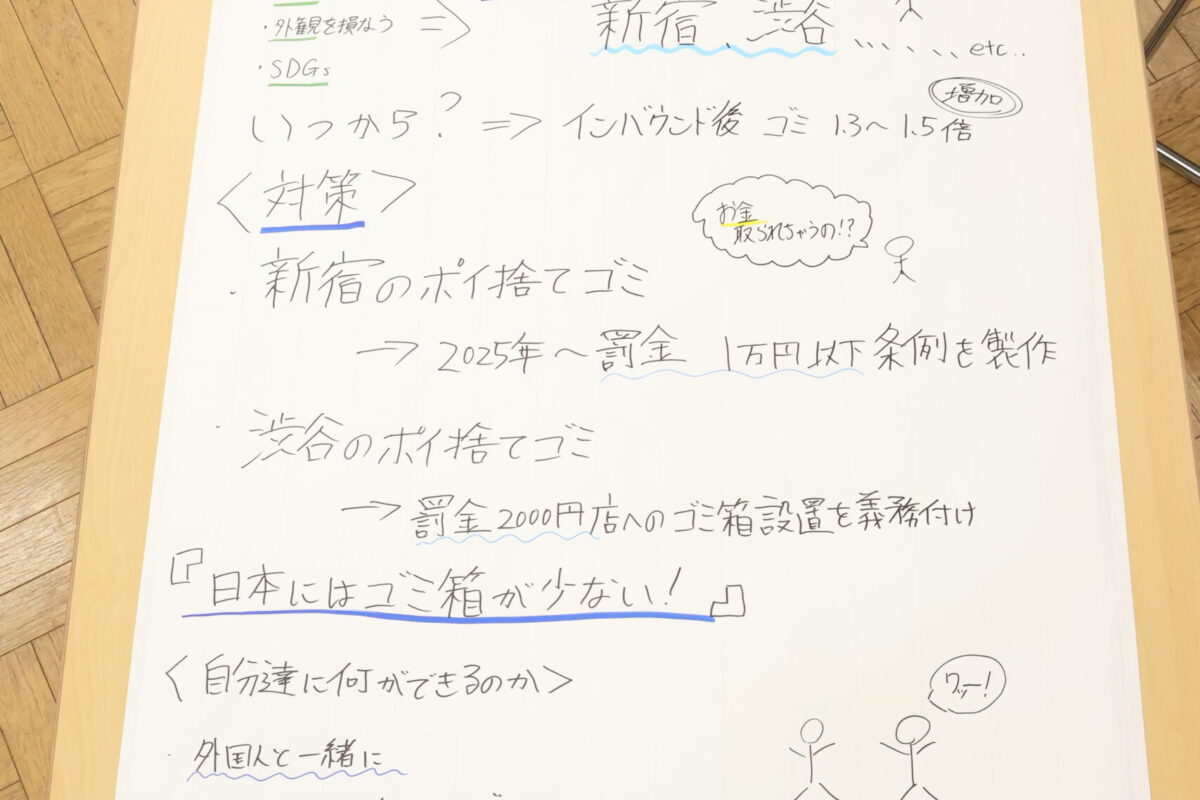 ・外観を損なう ⇒ 新宿、渋谷、、、、、etc..
・SDGs
増加
いつから? ⇒ インバウンド後 ゴミ 1.3〜1.5倍
<対策>
お金
取られちゃうの!?
・新宿のポイ捨てゴミ
→ 2025年〜罰金 1万円以下条例を製作
・渋谷のポイ捨てゴミ
→ 罰金2000円店へのゴミ箱設置を義務付け
『日本にはゴミ箱が少ない!』
<自分達に何ができるのか>
ワッー!
・外国人と一緒に